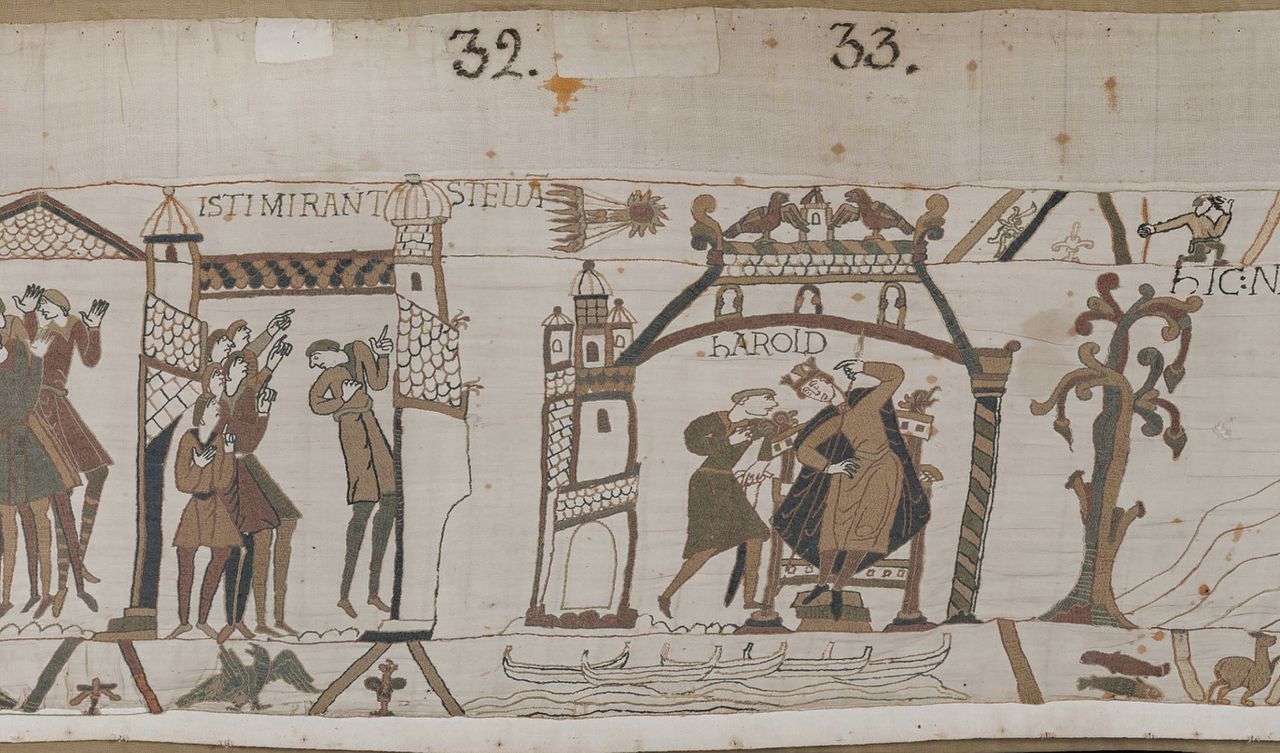 32.
33.
ISTI MIRANT STELLÃ
hAROLD
hIC: N